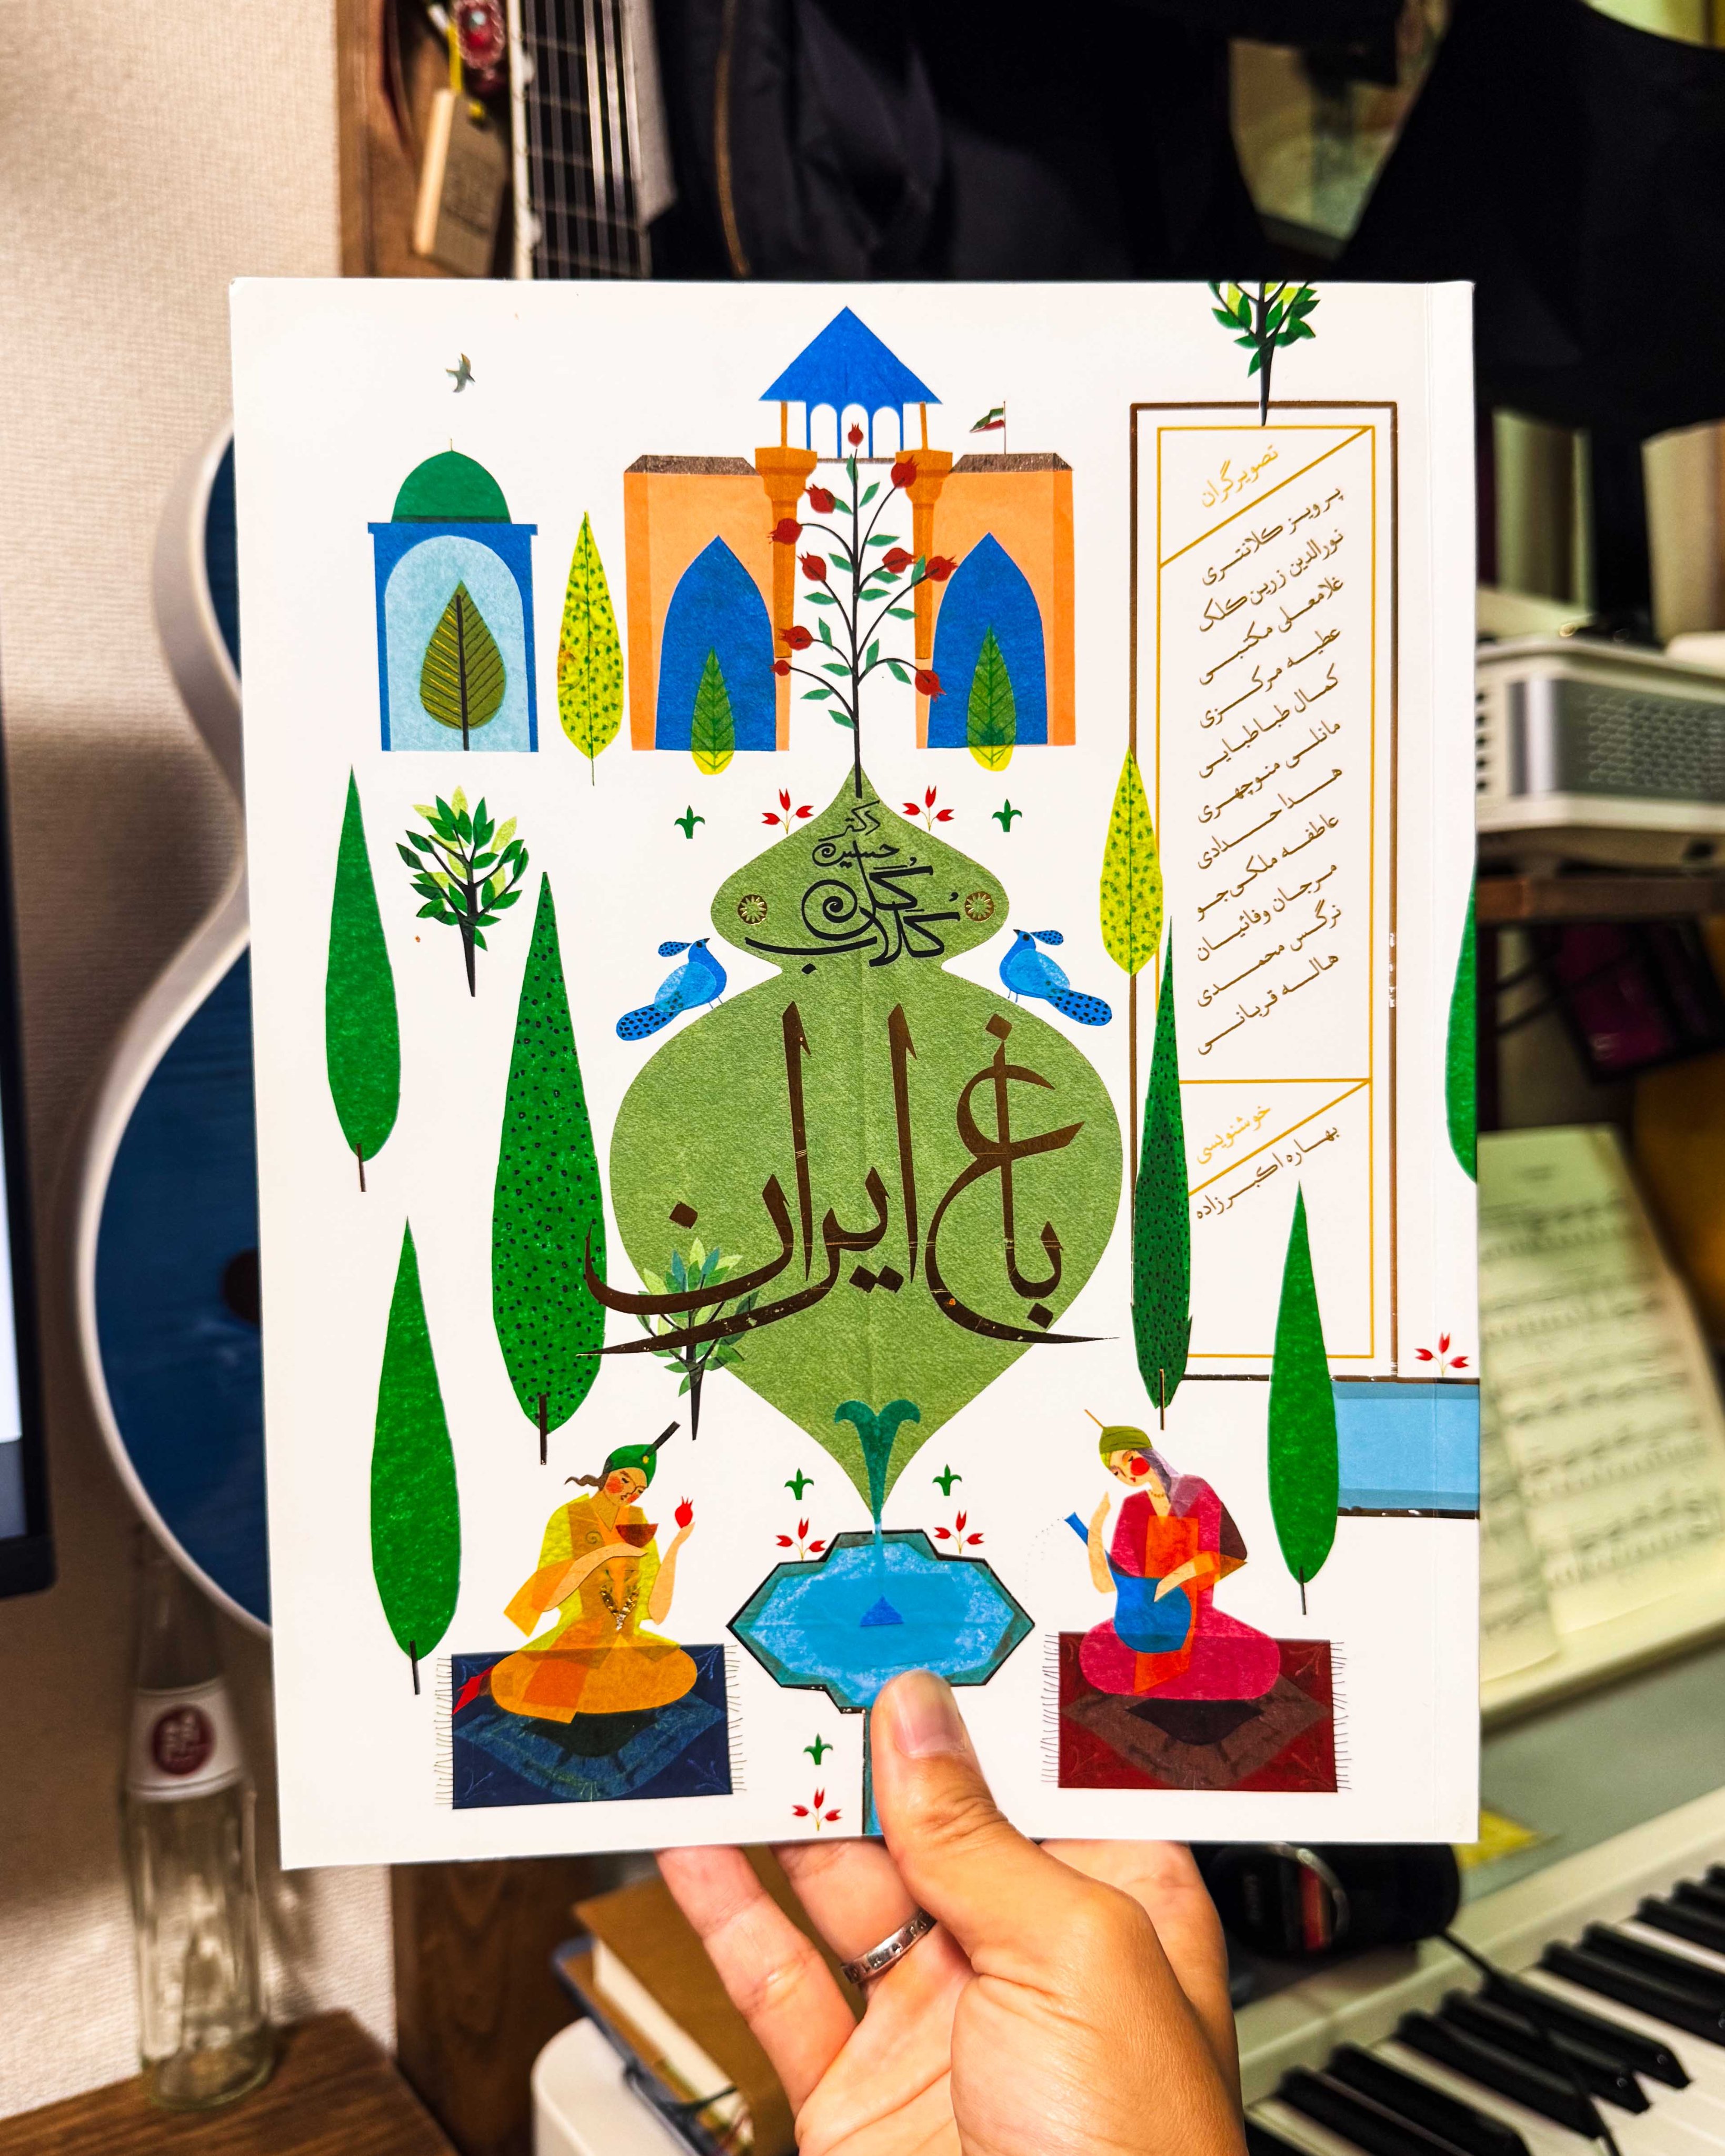 دکتر
حسین
گل
گلاب
باغ ایران
تصویرگران
پرویز کلانتری
نورالدین زرین کلک
غلامعلی مکتبی
عطیه مرکزی
کمال طباطبایی
مانلی منوچهری
هدا حدادی
عاطفه ملکی‌جو
مرجان وفائیان
نرگس محمدی
هاله قربانی
خوشنویسی
بهاره اکبرزاده